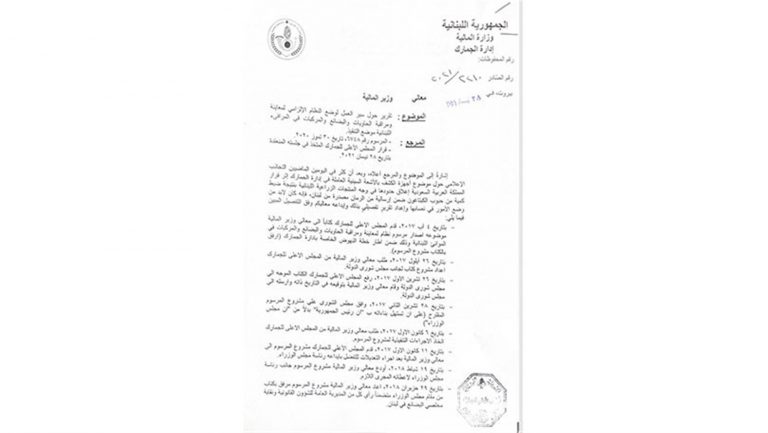 الجمهورية اللبنانية
وزارة المالية
إدارة الجمارك
رقم المحفوظات:
رقم الصادر
بيروت في
معالي وزير المالية
الموضوع : تقرير حول سير العمل لوضع النظام الإلزامي لمعاينة
ومراقبة الحاويات والبضائع والمركبات في المرافىء
اللبنانية موضع التنفيذ.
المرجع : - المرسوم رقم ٦٧٤٨ تاريخ ٣٠ تموز ٢٠٢٠.
- قرار المجلس الأعلى للجمارك المتخذ في جلسته المنعقدة
بتاريخ ٢٨ نيسان ٢٠٢١.
إشارة إلى الموضوع والمرجع أعلاه، وبعد أن كثر في اليومين الماضيين التجاذب
الإعلامي حول موضوع أجهزة الكشف بالأشعة السينية العاملة في إدارة الجمارك إثر قرار
المملكة العربية السعودية إغلاق حدودها في وجه المنتجات الزراعية اللبنانية بنتيجة ضبط
كمية من حبوب الكبتاغون ضمن إرسالية من الرمان مصدرة من لبنان، فإنه كان لابد من
وضع الأمور في نصابها وإعداد تقرير تفصيلي بذلك وإيداعه معاليكم وفق التفصيل المبين
فيما يلي:
- بتاريخ ٤ آب ٢٠١٧، قدم المجلس الاعلى للجمارك كتاباً الى معالي وزير المالية
موضوعه اصدار مرسوم نظام لمعاينة ومراقبة الحاويات والبضائع والمركبات في
الموانئ اللبنانية وذلك ضمن اطار خطة النهوض الخاصة بادارة الجمارك (ارفق
بالكتاب مشروع المرسوم).
- بتاريخ ٢٦ أيلول ٢٠١٧، طلب معالي وزير المالية من المجلس الاعلى للجمارك
اعداد مشروع كتاب لجانب مجلس شورى الدولة.
- بتاريخ ٢٦ تشرين الأول ٢٠١٧، رفع المجلس الاعلى للجمارك الكتاب الموجه الى
مجلس شورى الدولة وقام معالي وزير المالية بتوقيعه في التاريخ ذاته وارسله الى
مجلس شورى الدولة.
- بتاريخ ٢٨ تشرين الثاني ٢٠١٧، وافق مجلس الشورى على مشروع المرسوم
المقترح (على ان تستهل بناءاته ب "ان رئيس الجمهورية" بدلاً من "ان مجلس
الوزراء")
- بتاريخ ٦ كانون الاول ٢٠١٧، طلب معالي وزير المالية من المجلس الاعلى للجمارك
اتخاذ الاجراءات التنفيذية لمشروع المرسوم.
- بتاريخ ١١ كانون الاول ٢٠١٧، قدم المجلس الاعلى للجمارك مشروع المرسوم الى
معالي وزير المالية بعد اجراء التعديلات للتفضل بايداعه رئاسة مجلس الوزراء.
- بتاريخ ١٩ شباط ٢٠١٨، أودع معالي وزير المالية مشروع المرسوم جانب رئاسة
مجلس الوزراء لاعطائه المجرى اللازم.
- بتاريخ ٢٩ حزيران ٢٠١٨، اعاد معالي وزير المالية مشروع المرسوم مرفق بكتاب
من مقام مجلس الوزراء متضمناً رأي كل من المديرية العامة للشؤون القانونية ونقابة
مخلصي البضائع في لبنان.